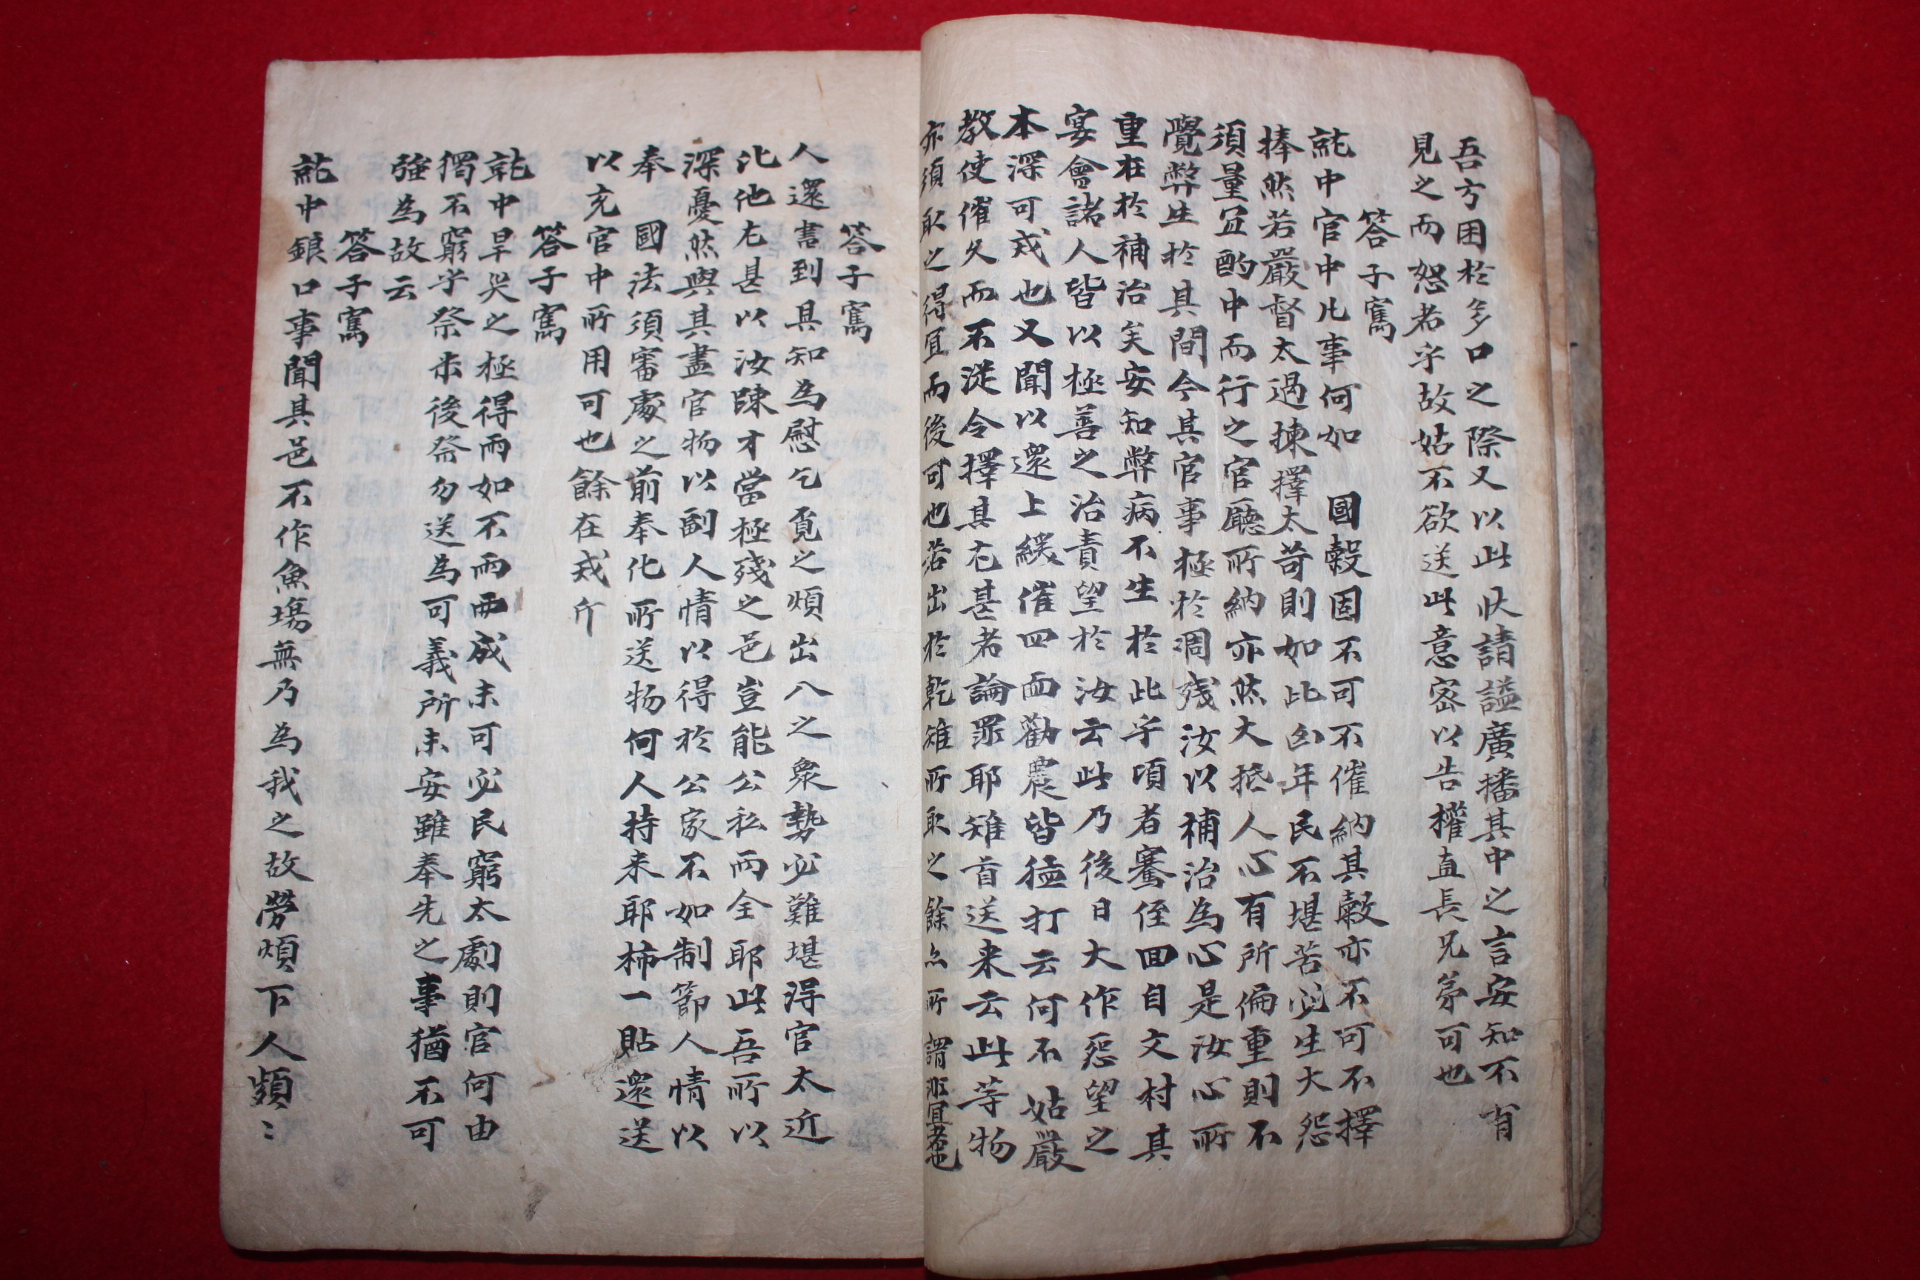 吾方困於多口之際又以此狀請謚廣播其中之言安知不有
見之而恕者乎故姑不欲送此意密以告權直長兄弟可也
答子寯
就中官中凡事何如 國穀固不可不催納其穀亦不可不擇
捧然若嚴督太過揀擇太苛則如此凶年民不堪苦必生大怨
須量宜酌中而行之官廳所納亦然大抵人心有所偏重則不
覺弊生於其間今其官事極於凋殘汝以補治為心是汝心所
重在於補治矣安知弊病不生於此乎頃者騫侄回自文村其
宴會諸人皆以極善之治責望於汝云此乃後日大作怨望之
本深可戒也又聞以還上緩催四面勸農皆猛打云何不姑嚴
教使催久而不從令擇其尤甚者論罪耶雉首送来云此等物
亦須取之得宜而後可也若出於乾雉所取之餘亦所謂非宜者也
答子寯
人還書到具知為慰乞覓之煩出入之衆勢必難堪得官太近
化他尤甚以汝踈才當極殘之邑豈能公私両全耶此吾所以
深憂然與其盡官物以副人情以得於公家不如制節人情以
奉 國法須審處之前奉化所送物何人持来耶柿一貼還送
以充官中所用可也餘在戒斤
答子寯
就中旱災之極得雨如不雨西成未可必民窮太劇則官何由
獨不窮乎祭米後祭勿送為可義所未安雖奉先之事猶不可
強為故云
答子寯
就中銀口事聞其邑不作魚塲無乃為我之故勞煩下人頻〻